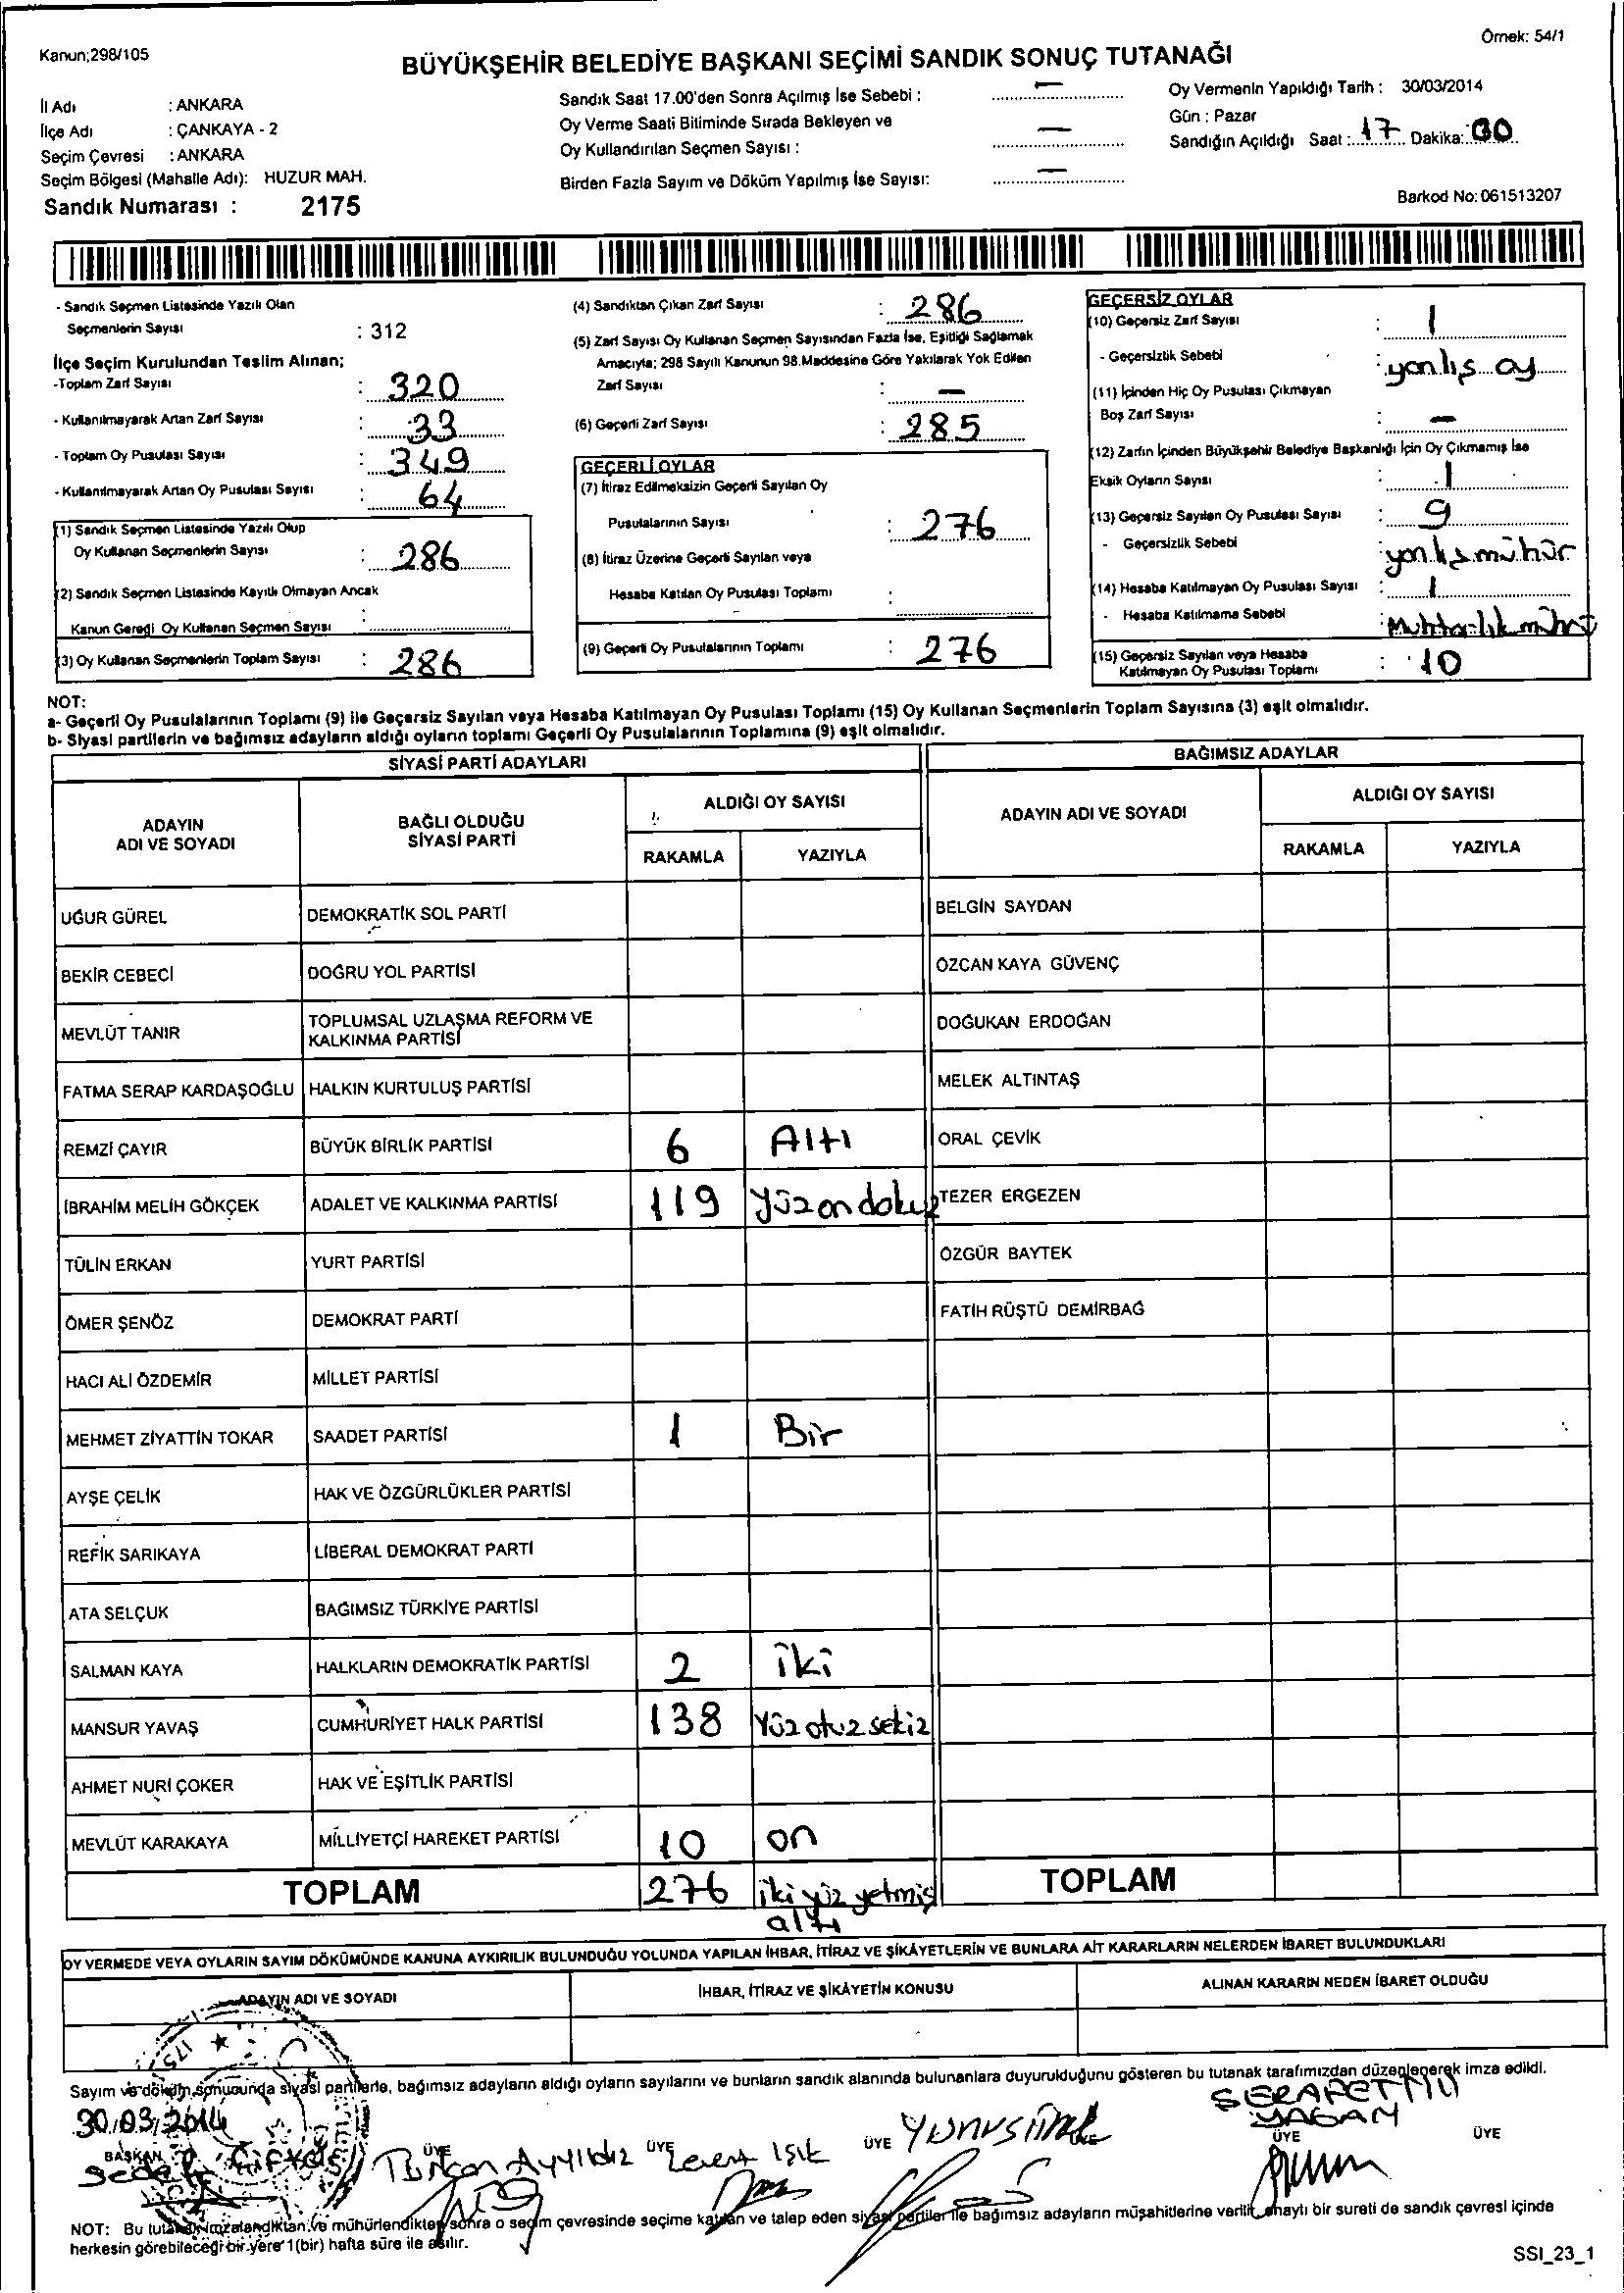 Kanun;298/105
Örnek: 54/1
BÜYÜKŞEHİR BELEDİYE BAŞKANI SEÇİMİ SANDIK SONUÇ TUTANAĞI
İl Adı : ANKARA
İlçe Adı : ÇANKAYA - 2
Seçim Çevresi : ANKARA
Seçim Bölgesi (Mahalle Adı): HUZUR MAH.
Sandık Numarası : 2175
Sandık Saat 17.00'den Sonra Açılmış İse Sebebi : —
Oy Verme Saati Bitiminde Sırada Bekleyen ve
Oy Kullandırılan Seçmen Sayısı : —
Birden Fazla Sayım ve Döküm Yapılmış İse Sayısı: —
Oy Vermenin Yapıldığı Tarih : 30/03/2014
Gün : Pazar
Sandığın Açıldığı Saat : 17 Dakika: 00
Barkod No: 061513207
- Sandık Seçmen Listesinde Yazılı Olan
Seçmenlerin Sayısı : 312
İlçe Seçim Kurulundan Teslim Alınan;
-Toplam Zarf Sayısı : 320
- Kullanılmayarak Artan Zarf Sayısı : 33
- Toplam Oy Pusulası Sayısı : 349
- Kullanılmayarak Artan Oy Pusulası Sayısı : 64
(1) Sandık Seçmen Listesinde Yazılı Olup
Oy Kullanan Seçmenlerin Sayısı : 286
(2) Sandık Seçmen Listesinde Kayıtlı Olmayan Ancak
Kanun Gereği Oy Kullanan Seçmen Sayısı :
(3) Oy Kullanan Seçmenlerin Toplam Sayısı : 286
(4) Sandıktan Çıkan Zarf Sayısı : 286
(5) Zarf Sayısı Oy Kullanan Seçmen Sayısından Fazla İse, Eşitliği Sağlamak
Amacıyla; 298 Sayılı Kanunun 98.Maddesine Göre Yakılarak Yok Edilen
Zarf Sayısı : —
(6) Geçerli Zarf Sayısı : 285
GEÇERLİ OYLAR
(7) İtiraz Edilmeksizin Geçerli Sayılan Oy
Pusulalarının Sayısı : 276
(8) İtiraz Üzerine Geçerli Sayılan veya
Hesaba Katılan Oy Pusulası Toplamı :
(9) Geçerli Oy Pusulalarının Toplamı : 276
GEÇERSİZ OYLAR
(10) Geçersiz Zarf Sayısı : 1
- Geçersizlik Sebebi : yanlış oy
(11) İçinden Hiç Oy Pusulası Çıkmayan
Boş Zarf Sayısı : —
(12) Zarfın İçinden Büyükşehir Belediye Başkanlığı İçin Oy Çıkmamış İse
Eksik Oyların Sayısı : 1
(13) Geçersiz Sayılan Oy Pusulası Sayısı : 9
- Geçersizlik Sebebi : yanlış mühür
(14) Hesaba Katılmayan Oy Pusulası Sayısı : 1
- Hesaba Katılmama Sebebi : Muhtarlık mührü
(15) Geçersiz Sayılan veya Hesaba
Katılmayan Oy Pusulası Toplamı : 10
NOT:
a- Geçerli Oy Pusulalarının Toplamı (9) ile Geçersiz Sayılan veya Hesaba Katılmayan Oy Pusulası Toplamı (15) Oy Kullanan Seçmenlerin Toplam Sayısına (3) eşit olmalıdır.
b- Siyasi partilerin ve bağımsız adayların aldığı oyların toplamı Geçerli Oy Pusulalarının Toplamına (9) eşit olmalıdır.
SİYASİ PARTİ ADAYLARI
BAĞIMSIZ ADAYLAR
ADAYIN
ADI VE SOYADI
BAĞLI OLDUĞU
SİYASİ PARTİ
ALDIĞI OY SAYISI
RAKAMLA YAZIYLA
ADAYIN ADI VE SOYADI
ALDIĞI OY SAYISI
RAKAMLA YAZIYLA
UĞUR GÜREL DEMOKRATİK SOL PARTİ BELGİN SAYDAN
BEKİR CEBECİ DOĞRU YOL PARTİSİ ÖZCAN KAYA GÜVENÇ
MEVLÜT TANIR TOPLUMSAL UZLAŞMA REFORM VE
KALKINMA PARTİSİ DOĞUKAN ERDOĞAN
FATMA SERAP KARDAŞOĞLU HALKIN KURTULUŞ PARTİSİ MELEK ALTINTAŞ
REMZİ ÇAYIR BÜYÜK BİRLİK PARTİSİ 6 Altı ORAL ÇEVİK
İBRAHİM MELİH GÖKÇEK ADALET VE KALKINMA PARTİSİ 119 yüzondokuz TEZER ERGEZEN
TÜLİN ERKAN YURT PARTİSİ ÖZGÜR BAYTEK
ÖMER ŞENÖZ DEMOKRAT PARTİ FATİH RÜŞTÜ DEMİRBAĞ
HACI ALİ ÖZDEMİR MİLLET PARTİSİ
MEHMET ZİYATTİN TOKAR SAADET PARTİSİ 1 Bir
AYŞE ÇELİK HAK VE ÖZGÜRLÜKLER PARTİSİ
REFİK SARIKAYA LİBERAL DEMOKRAT PARTİ
ATA SELÇUK BAĞIMSIZ TÜRKİYE PARTİSİ
SALMAN KAYA HALKLARIN DEMOKRATİK PARTİSİ 2 iki
MANSUR YAVAŞ CUMHURİYET HALK PARTİSİ 138 Yüz otuz sekiz
AHMET NURİ ÇOKER HAK VE EŞİTLİK PARTİSİ
MEVLÜT KARAKAYA MİLLİYETÇİ HAREKET PARTİSİ 10 on
TOPLAM 276 iki yüz yetmiş
altı
TOPLAM
OY VERMEDE VEYA OYLARIN SAYIM DÖKÜMÜNDE KANUNA AYKIRILIK BULUNDUĞU YOLUNDA YAPILAN İHBAR, İTİRAZ VE ŞİKÂYETLERİN VE BUNLARA AİT KARARLARIN NELERDEN İBARET BULUNDUKLARI
ADAYIN ADI VE SOYADI
İHBAR, İTİRAZ VE ŞİKÂYETİN KONUSU
ALINAN KARARIN NEDEN İBARET OLDUĞU
Sayım ve döküm sonucunda siyasi partilerle, bağımsız adayların aldığı oyların sayılarını ve bunların sandık alanında bulunanlara duyurulduğunu gösteren bu tutanak tarafımızdan düzenlenerek imza edildi.
30.03.2014
BAŞKAN ÜYE ÜYE ÜYE ÜYE ÜYE
Türkan Ayyıldız
Levent Işık
YUNUS
SERAFETTİN
YAŞAM
NOT: Bu tutanak imzalandıktan ve mühürlendikten sonra o seçim çevresinde seçime katılan ve talep eden siyasi partiler ile bağımsız adayların müşahitlerine verilir, onaylı bir sureti de sandık çevresi içinde
herkesin görebileceği bir yere 1(bir) hafta süre ile asılır.
SSI_23_1